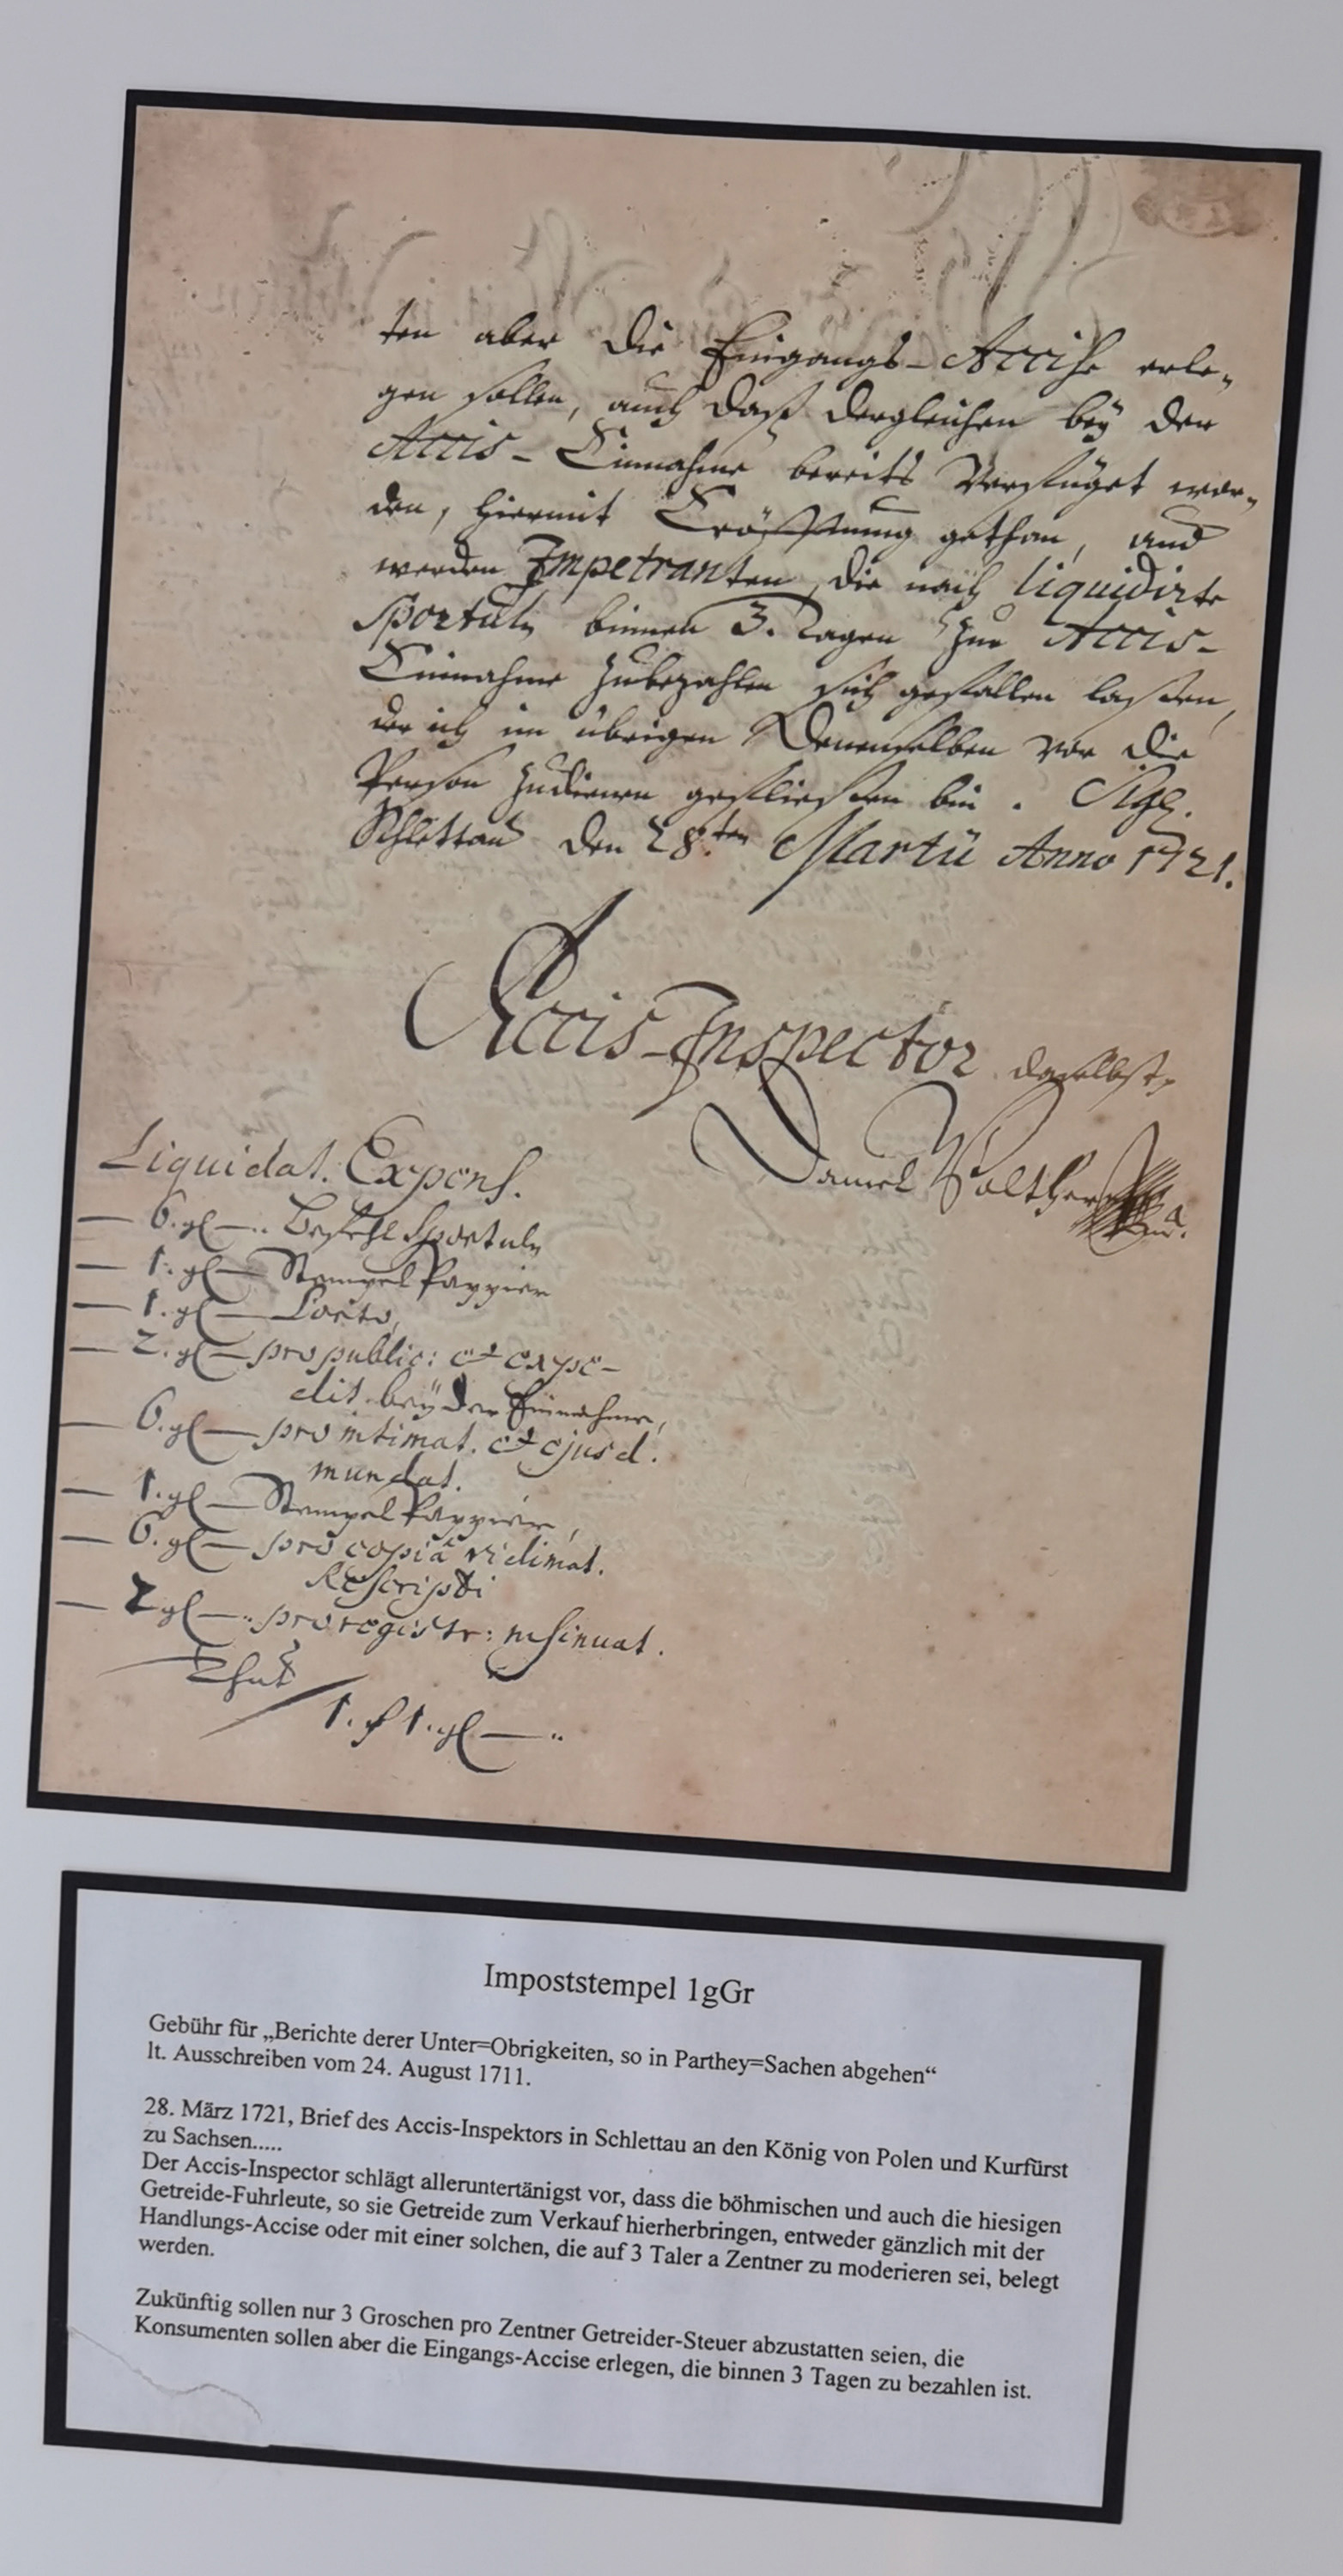 ten aber die Eingangs-Accise erle-
gen sollen, auch daß dergleichen bey der
Accis-Einnahme bereits Verfüget wor-
den, hiermit Eröffnung gethan, und
werden Impetranten, die nach liquidirte
Sportuln binnen 3. Tagen zur Accis-
Einnahme zubezahlen sich gefallen laßen,
der ich im übrigen Denenselben vor die
Person zudienen gefließen bin. Sigl.
Schlettau den 28.ten Martii Anno 1721.
Accis-Inspector daselbst
Daniel Walther
Liquidat. Expens.
— 6. gl — .. Befehl Sportuln
— 1. gl — Stempel Pappier
— 1. gl — Porto,
— 2. gl — pro public: et expe-
dit. bey der Einnahme,
— 6. gl — pro intimat. et ejusd.
mundat.
— 1. gl — Stempel Pappier,
— 6. gl — pro copiâ vidimat.
Rescripti
— gl — .. pro registr: insinuat.
Thut
1. f 1. gl — ..
Impoststempel 1gGr
Gebühr für „Berichte derer Unter=Obrigkeiten, so in Parthey=Sachen abgehen“
lt. Ausschreiben vom 24. August 1711.
28. März 1721, Brief des Accis-Inspektors in Schlettau an den König von Polen und Kurfürst
zu Sachsen.....
Der Accis-Inspector schlägt alleruntertänigst vor, dass die böhmischen und auch die hiesigen
Getreide-Fuhrleute, so sie Getreide zum Verkauf hierherbringen, entweder gänzlich mit der
Handlungs-Accise oder mit einer solchen, die auf 3 Taler a Zentner zu moderieren sei, belegt
werden.
Zukünftig sollen nur 3 Groschen pro Zentner Getreider-Steuer abzustatten seien, die
Konsumenten sollen aber die Eingangs-Accise erlegen, die binnen 3 Tagen zu bezahlen ist.